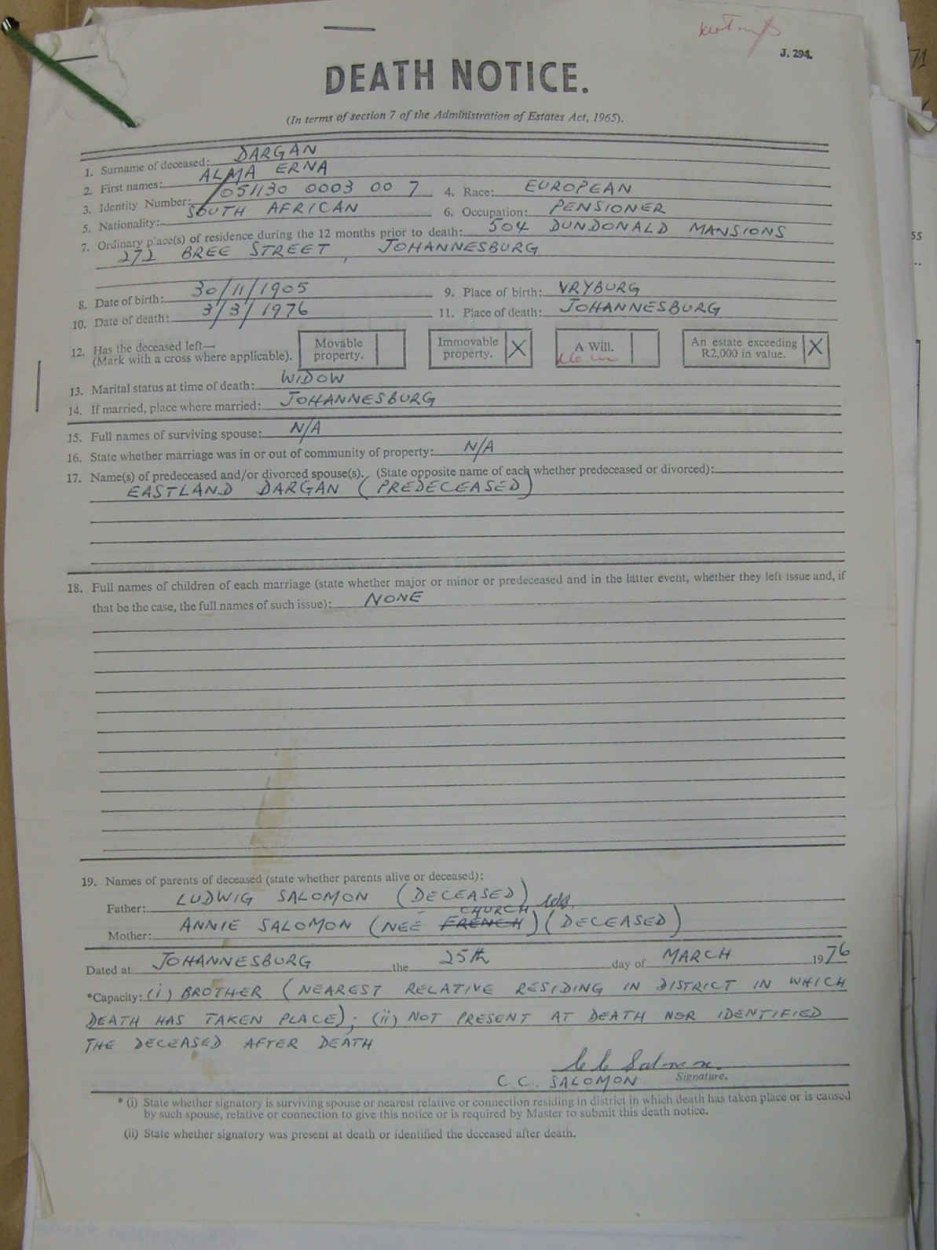 J. 294.
DEATH NOTICE.
(In terms of section 7 of the Administration of Estates Act, 1965).
1. Surname of deceased: DARGAN
2. First names: ALMA ERNA
3. Identity Number: 051130 0003 00 7 4. Race: EUROPEAN
5. Nationality: SOUTH AFRICAN 6. Occupation: PENSIONER
7. Ordinary place(s) of residence during the 12 months prior to death: 504 DUNDONALD MANSIONS
272 BREE STREET, JOHANNESBURG
8. Date of birth: 30/11/1905 9. Place of birth: VRYBURG
10. Date of death: 3/3/1976 11. Place of death: JOHANNESBURG
12. Has the deceased left— Movable Immovable A Will. An estate exceeding
(Mark with a cross where applicable). property. property. X R2,000 in value. X
13. Marital status at time of death: WIDOW
14. If married, place where married: JOHANNESBURG
15. Full names of surviving spouse: N/A
16. State whether marriage was in or out of community of property: N/A
17. Name(s) of predeceased and/or divorced spouse(s). (State opposite name of each whether predeceased or divorced):
EASTLAND DARGAN (PREDECEASED)
18. Full names of children of each marriage (state whether major or minor or predeceased and in the latter event, whether they left issue and, if
that be the case, the full names of such issue): NONE
19. Names of parents of deceased (state whether parents alive or deceased):
Father: LUDWIG SALOMON (DECEASED)
CHURCH
Mother: ANNIE SALOMON (NEE FRENCH) (DECEASED)
Dated at JOHANNESBURG the 25th day of MARCH 1976
*Capacity: (i) BROTHER (NEAREST RELATIVE RESIDING IN DISTRICT IN WHICH
DEATH HAS TAKEN PLACE); (ii) NOT PRESENT AT DEATH NOR IDENTIFIED
THE DECEASED AFTER DEATH
C.C. SALOMON Signature.
* (i) State whether signatory is surviving spouse or nearest relative or connection residing in district in which death has taken place or is caused
by such spouse, relative or connection to give this notice or is required by Master to submit this death notice.
(ii) State whether signatory was present at death or identified the deceased after death.